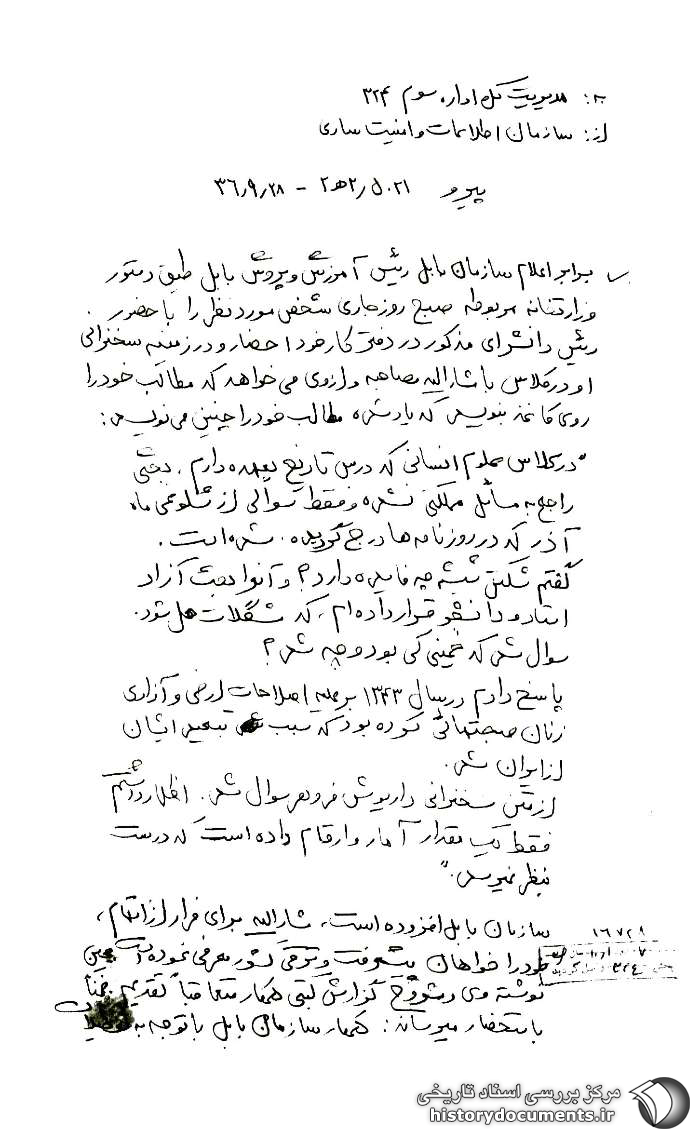 به: مدیریت کل اداره سوم ۳۲۴
از: سازمان اطلاعات و امنیت ساری
پیرو ۵۰۲۱/۲ه۲ – ۳۶/۹/۲۸
برابر اعلام سازمان بابل رئیس آموزش و پرورش بابل طبق دستور
وزارتخانه مربوطه صبح روز جاری شخص مورد نظر را با حضور
رئیس دانشسرای مذکور در دفتر کار خود احضار و در زمینه سخنرانی
او در کلاس با مشارالیه مصاحبه و از وی می خواهد که مطالب خود را
روی کاغذ بنویسد که یاد شده مطالب خود را چنین می نویسد:
"در کلاس علوم انسانی که درس تاریخ بعهده دارم، بحثی
راجع به مسائل مملکتی نشده و فقط سوالی از شلوغی ماه
آذر که در روزنامه ها درج گردیده، شده است.
گفتم شکستن شیشه چه فایده دارد؟ و آنوا بحث آزاد
استاد و دانشجو قرار داده ام، که مشکلات حل شود.
سوال شد که خمینی کی بود و چه شد؟
پاسخ دادم در سال ۱۳۴۳ بر علیه اصلاحات ارضی و آزادی
زنان صحبتهائی کرده بود که سبب تبعید ایشان
از ایران شد.
از متن سخنرانی داریوش فروهر سوال شد. اظهار داشتم
فقط یک مقدار آمار و ارقام داده است که درست
بنظر نمیرسد."
سازمان بابل افزوده است، مشارالیه برای فرار از اتهام،
خود را خواهان پیشرفت و ترقی کشور معرفی نموده است عین
نوشته وی و مشروح گزارش کتبی همکار متعاقباً تقدیم ضمناً
باستحضار میرساند: همکار سازمان بابل با توجه به
۱۶۷۲۸
۳۲۴
مرکز بررسی اسناد تاریخی
historydocuments.ir